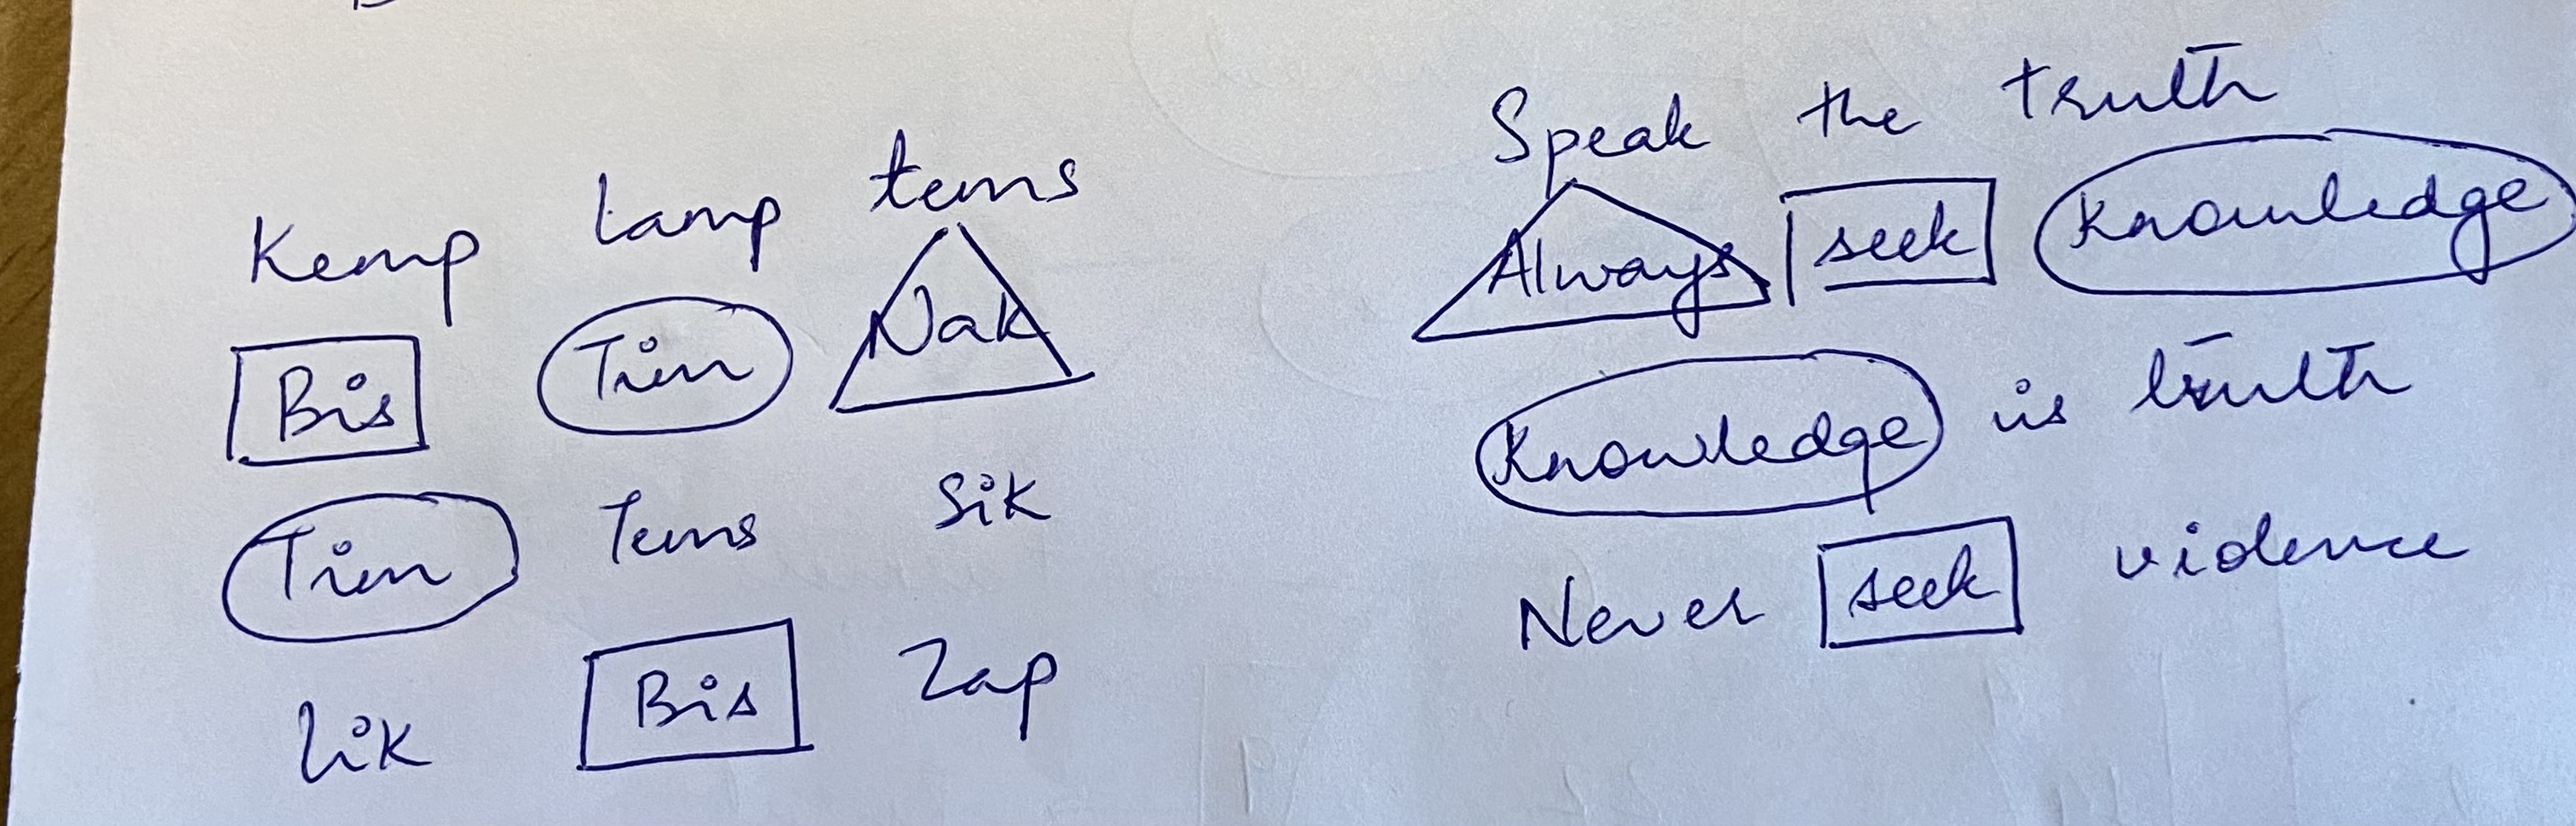 Kemp Lamp tems Speak the truth
Bis Tim Nak Always seek Knowledge
Tim Tems Sik Knowledge is truth
Lik Bis Zap Never seek vidence